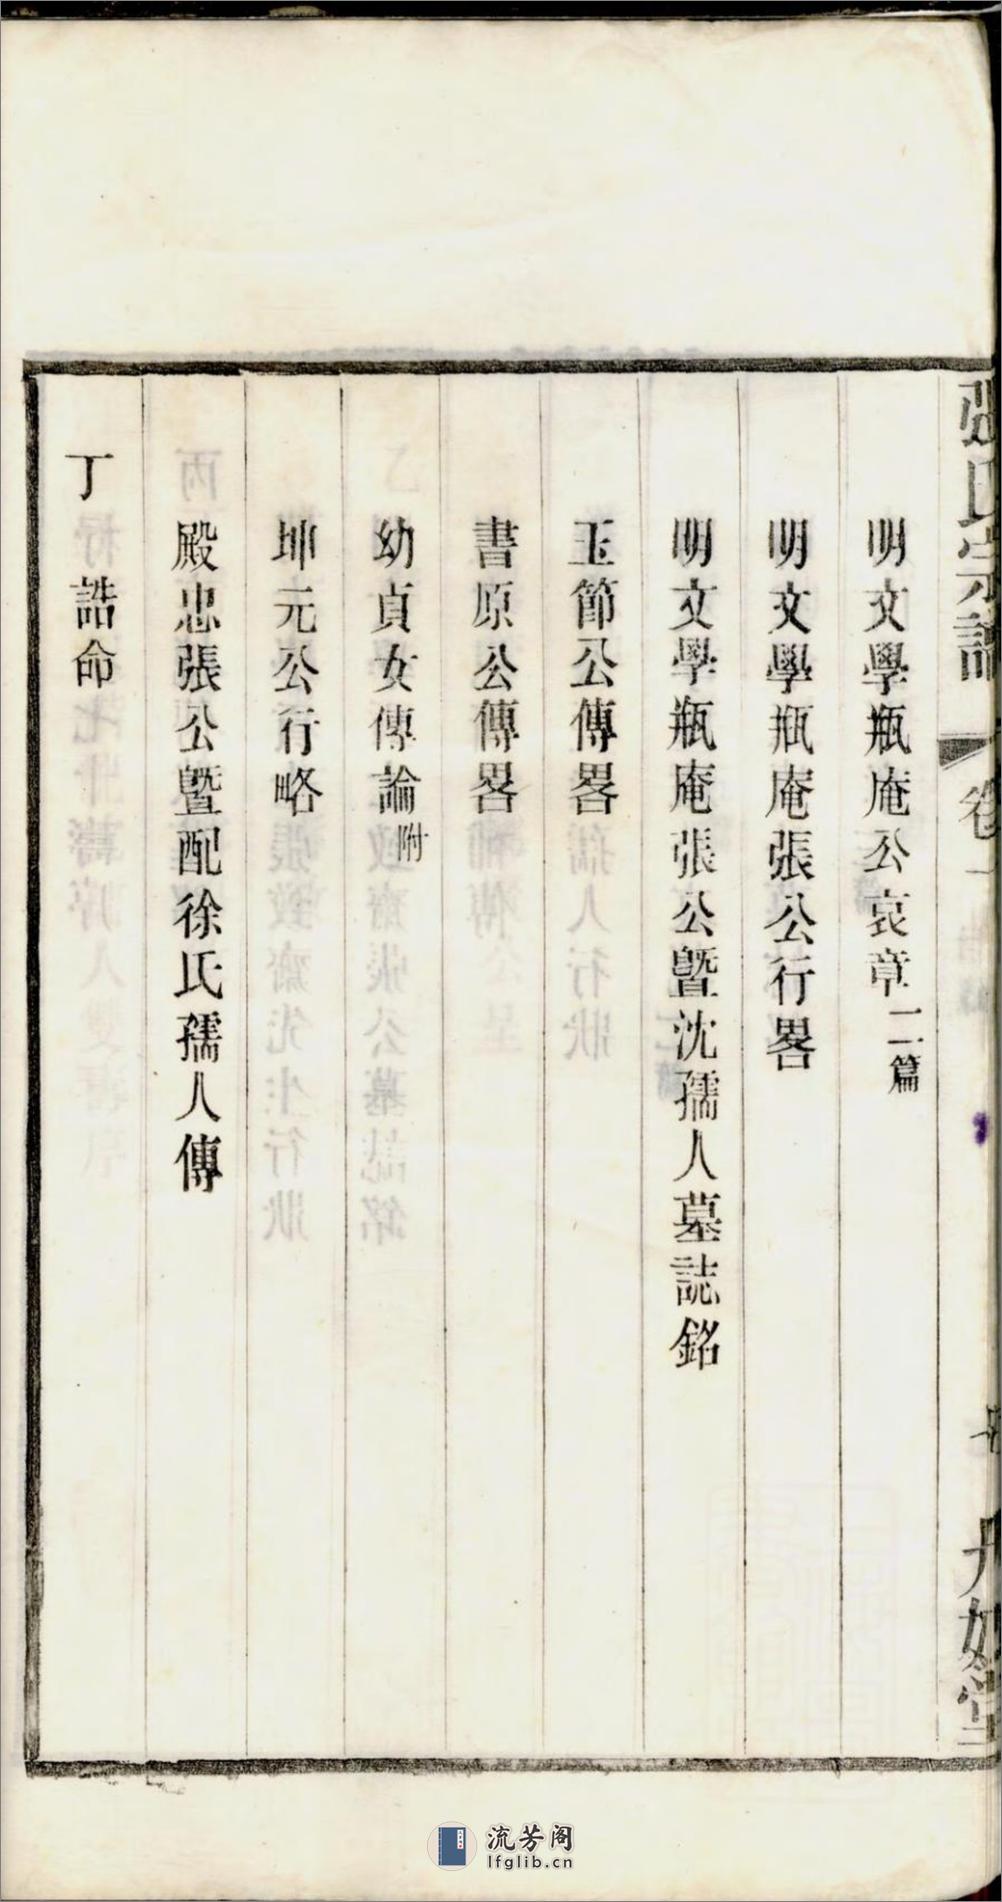 張氏宗譜
卷一
明文學瓶庵公哀章二篇
明文學瓶庵張公行畧
明文學瓶庵張公暨沈孺人墓誌銘
玉節公傳畧
書原公傳畧
幼貞女傳論附
坤元公行略
殿忠張公暨配徐氏孺人傳
丁 誥命
流芳阁
lfglib.cn